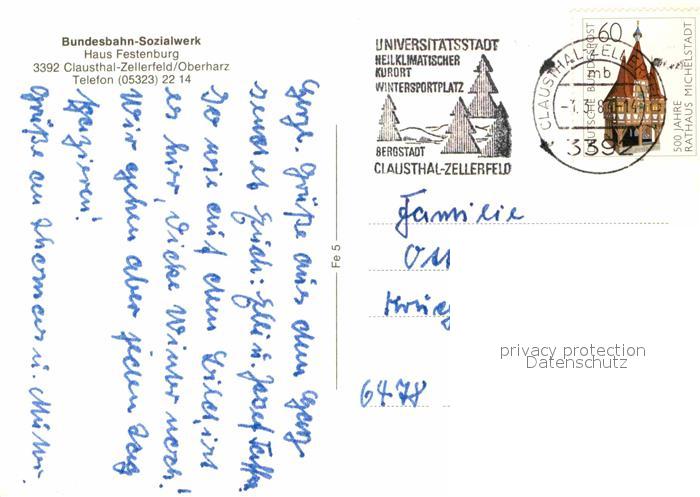 Bundesbahn-Sozialwerk
Haus Festenburg
3392 Clausthal-Zellerfeld/Oberharz
Telefon (05323) 22 14
Herzl. Grüße aus dem Harz
senden Euch: Elli u. Josef
So wie auf dem Bild ist
es hier, Dicke Winter noch!
Wir gehen aber jeden Tag
spazieren!
Grüße an Thomas u. Mutter.
Fe 5
UNIVERSITÄTSSTADT
HEILKLIMATISCHER
KURORT
WINTERSPORTPLATZ
BERGSTADT
CLAUSTHAL-ZELLERFELD
CLAUSTHAL-ZELLERFELD
mb
3392
60
DEUTSCHE BUNDESPOST
500 JAHRE
RATHAUS MICHELSTADT
Familie
Ott
6478
privacy protection
Datenschutz